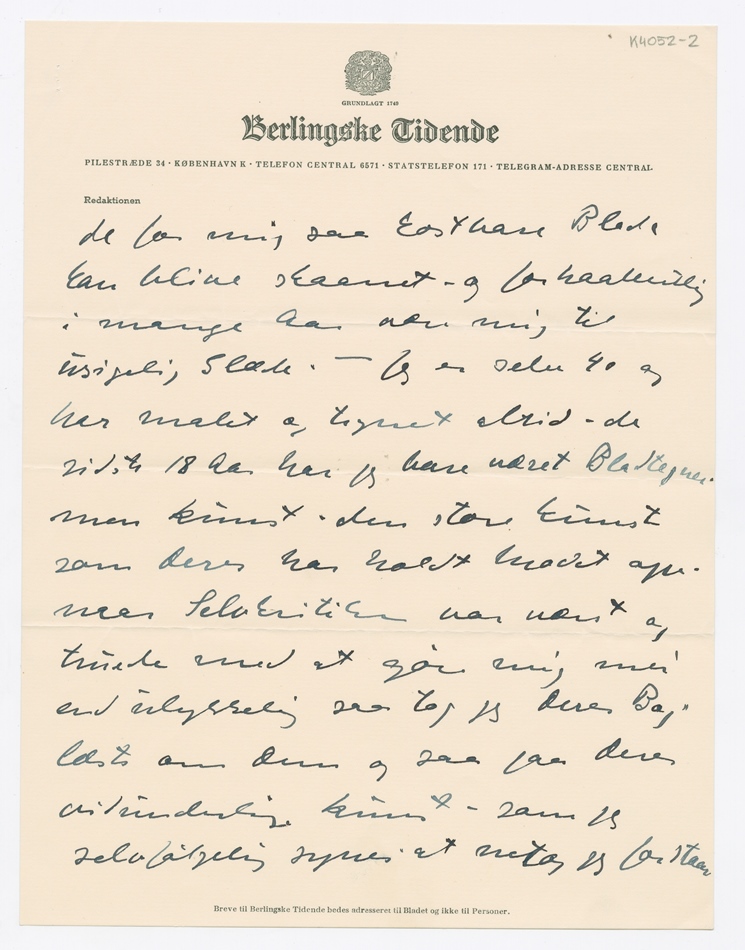 K4052-2
GRUNDLAGT 1749
Berlingske Tidende
PILESTRÆDE 34 · KØBENHAVN K · TELEFON CENTRAL 6571 · STATSTELEFON 171 · TELEGRAM-ADRESSE CENTRAL
Redaktionen
de for mig saa kostbare Blade
kan blive skaanet - og forhaabentlig
i mange Aar være mig til
usigelig Glæde. — Jeg er selv 40 og
har malet og tegnet altid - de
sidste 18 Aar har jeg bare været Bladtegner.
men kunst - den store kunst
som Deres har holdt Modet oppe.
naar Selvkritiken var værst og
truede med at gøre mig mer
end ulykkelig saa tog jeg Deres Bog.
læste om Dem og saa paa Deres
vidunderlige kunst - som jeg
selvfølgelig synes at netop jeg forstaar
Breve til Berlingske Tidende bedes adresseret til Bladet og ikke til Personer.